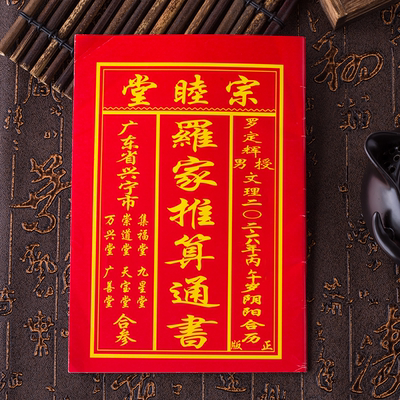 宗睦堂
罗定辉授
男·文理二〇二六年丙午岁阴阳合历
正版
羅家推算通書
广东省兴宁市
集福堂 九星堂
崇道堂 天宝堂
万兴堂 广善堂
合参